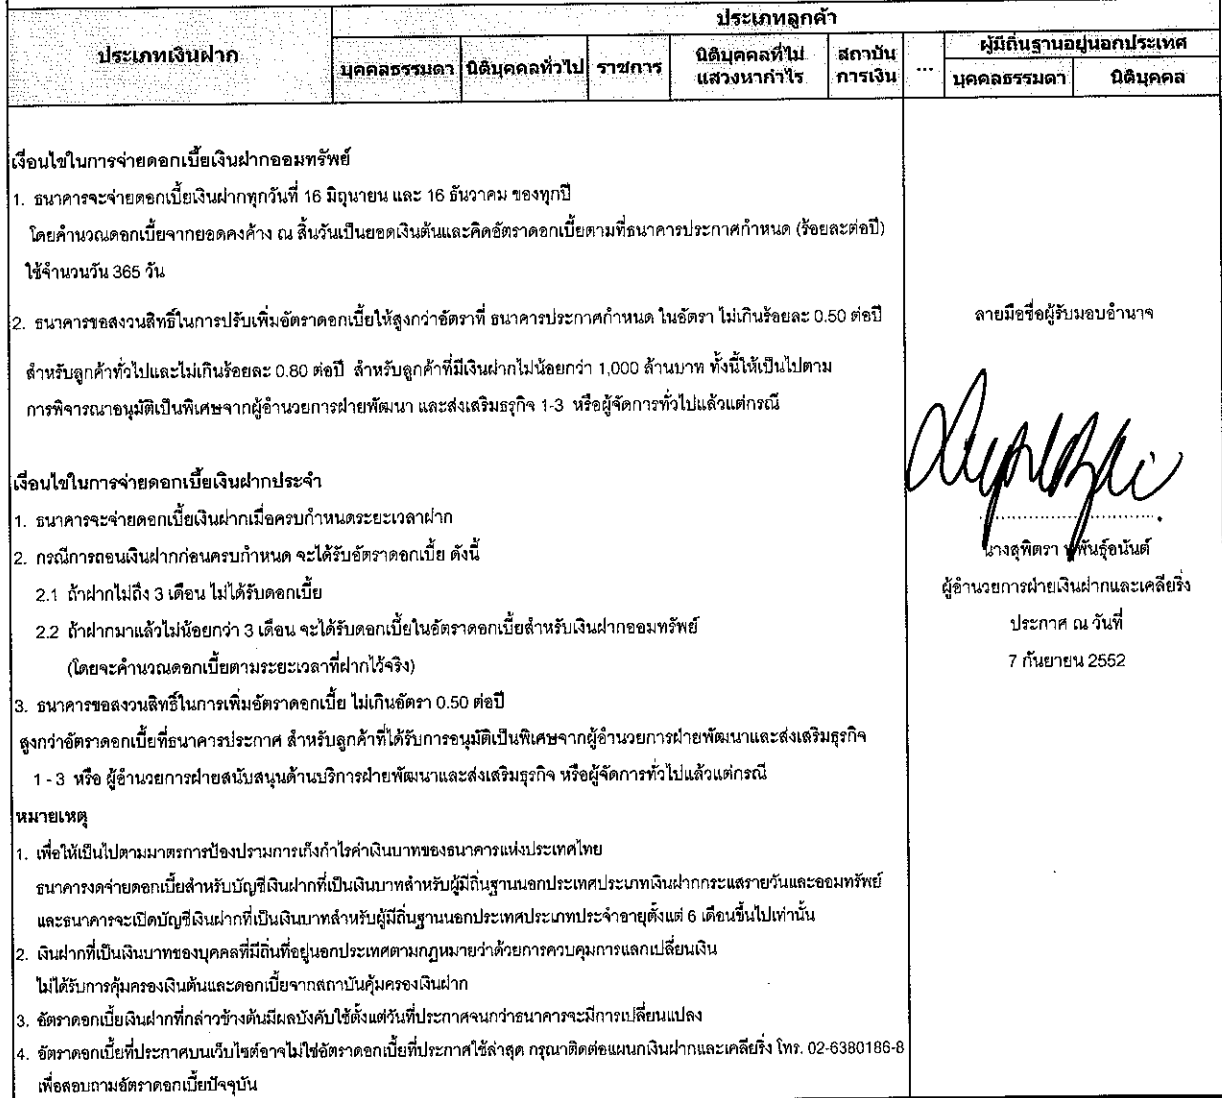 ประเภทเงินฝาก
ประเภทลูกค้า
บุคคลธรรมดา
นิติบุคคลทั่วไป
ราชการ
นิติบุคคลที่ไม่
แสวงหากำไร
สถาบัน
การเงิน
...
ผู้มีถิ่นฐานอยู่นอกประเทศ
บุคคลธรรมดา
นิติบุคคล
เงื่อนไขในการจ่ายดอกเบี้ยเงินฝากออมทรัพย์
1. ธนาคารจะจ่ายดอกเบี้ยเงินฝากทุกวันที่ 16 มิถุนายน และ 16 ธันวาคม ของทุกปี
โดยคำนวณดอกเบี้ยจากยอดคงค้าง ณ สิ้นวันเป็นยอดเงินต้นและคิดอัตราดอกเบี้ยตามที่ธนาคารประกาศกำหนด (ร้อยละต่อปี)
ใช้จำนวนวัน 365 วัน
2. ธนาคารขอสงวนสิทธิ์ในการปรับเพิ่มอัตราดอกเบี้ยให้สูงกว่าอัตราที่ ธนาคารประกาศกำหนด ในอัตรา ไม่เกินร้อยละ 0.50 ต่อปี
สำหรับลูกค้าทั่วไปและไม่เกินร้อยละ 0.80 ต่อปี สำหรับลูกค้าที่มีเงินฝากไม่น้อยกว่า 1,000 ล้านบาท ทั้งนี้ให้เป็นไปตาม
การพิจารณาอนุมัติเป็นพิเศษจากผู้อำนวยการฝ่ายพัฒนา และส่งเสริมธุรกิจ 1-3 หรือผู้จัดการทั่วไปแล้วแต่กรณี
เงื่อนไขในการจ่ายดอกเบี้ยเงินฝากประจำ
1. ธนาคารจะจ่ายดอกเบี้ยเงินฝากเมื่อครบกำหนดระยะเวลาฝาก
2. กรณีการถอนเงินฝากก่อนครบกำหนด จะได้รับอัตราดอกเบี้ย ดังนี้
2.1 ถ้าฝากไม่ถึง 3 เดือน ไม่ได้รับดอกเบี้ย
2.2 ถ้าฝากมาแล้วไม่น้อยกว่า 3 เดือน จะได้รับดอกเบี้ยในอัตราดอกเบี้ยสำหรับเงินฝากออมทรัพย์
(โดยจะคำนวณดอกเบี้ยตามระยะเวลาที่ฝากไว้จริง)
3. ธนาคารขอสงวนสิทธิ์ในการเพิ่มอัตราดอกเบี้ย ไม่เกินอัตรา 0.50 ต่อปี
สูงกว่าอัตราดอกเบี้ยที่ธนาคารประกาศ สำหรับลูกค้าที่ได้รับการอนุมัติเป็นพิเศษจากผู้อำนวยการฝ่ายพัฒนาและส่งเสริมธุรกิจ
1 - 3 หรือ ผู้อำนวยการฝ่ายสนับสนุนด้านบริการฝ่ายพัฒนาและส่งเสริมธุรกิจ หรือผู้จัดการทั่วไปแล้วแต่กรณี
หมายเหตุ
1. เพื่อให้เป็นไปตามมาตรการป้องปรามการเก็งกำไรค่าเงินบาทของธนาคารแห่งประเทศไทย
ธนาคารงดจ่ายดอกเบี้ยสำหรับบัญชีเงินฝากที่เป็นเงินบาทสำหรับผู้มีถิ่นฐานนอกประเทศประเภทเงินฝากกระแสรายวันและออมทรัพย์
และธนาคารจะเปิดบัญชีเงินฝากที่เป็นเงินบาทสำหรับผู้มีถิ่นฐานนอกประเทศประเภทประจำอายุตั้งแต่ 6 เดือนขึ้นไปเท่านั้น
2. เงินฝากที่เป็นเงินบาทของบุคคลที่มีถิ่นที่อยู่นอกประเทศตามกฎหมายว่าด้วยการควบคุมการแลกเปลี่ยนเงิน
ไม่ได้รับการคุ้มครองเงินต้นและดอกเบี้ยจากสถาบันคุ้มครองเงินฝาก
3. อัตราดอกเบี้ยเงินฝากที่กล่าวข้างต้นมีผลบังคับใช้ตั้งแต่วันที่ประกาศจนกว่าธนาคารจะมีการเปลี่ยนแปลง
4. อัตราดอกเบี้ยที่ประกาศบนเว็บไซต์อาจไม่ใช่อัตราดอกเบี้ยที่ประกาศใช้ล่าสุด กรุณาติดต่อแผนกเงินฝากและเคลียริ่ง โทร. 02-6380186-8
เพื่อสอบถามอัตราดอกเบี้ยปัจจุบัน
ลายมือชื่อผู้รับมอบอำนาจ
นางสุพิตรา
ผู้อำนวยการฝ่ายเงินฝากและเคลียริ่ง
ประกาศ ณ วันที่
7 กันยายน 2552